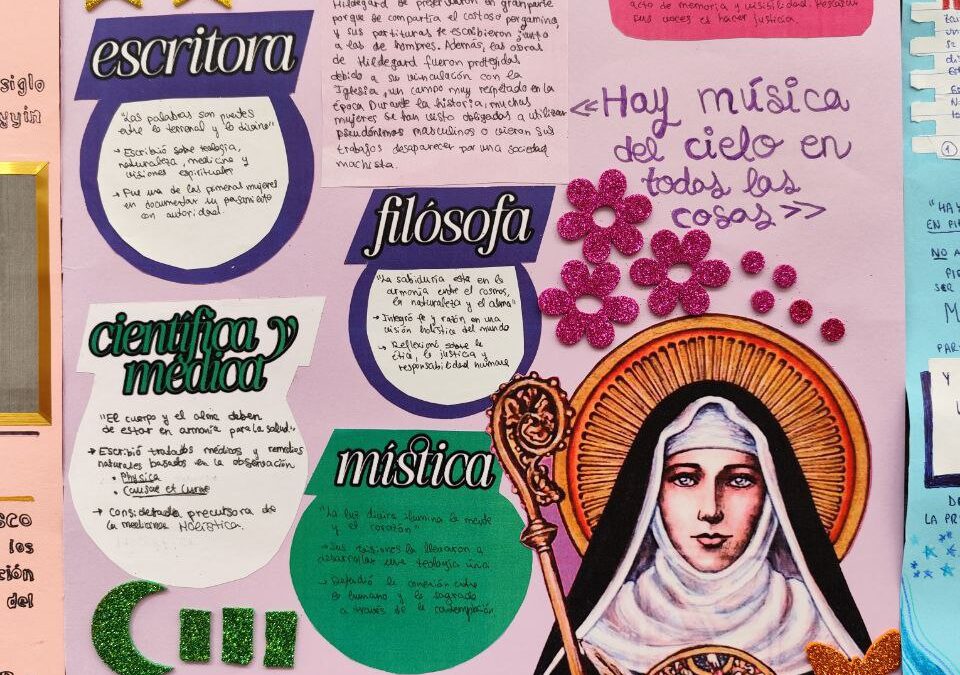 siglo
yyin
sco
los
ción
del
escritora
"Las palabras son puentes
entre lo terrenal y lo divino"
→ Escribió sobre teología,
naturaleza, medicina y
visiones espirituales
→ Fue una de las primeras mujeres
en documentar su pensamiento
con autoridad.
Hildegard se preservaron en gran parte
porque se compartía el costoso pergamino,
y sus partituras se escribieron junto
a las de hombres. Además, las obras
de Hildegard fueron protegidas
debido a su vinculación con la
Iglesia, un campo muy respetado en la
época. Durante la historia, muchas
mujeres se han visto obligadas a utilizar
pseudónimos masculinos o vieron sus
trabajos desaparecer por una sociedad
machista.
acto de memoria y visibilidad. Rescatar
sus voces es hacer justicia.
«Hay música
del cielo en
todas las
cosas»
filósofa
"La sabiduría está en la
armonía entre el cosmos,
la naturaleza y el alma"
→ Integró fe y razón en una
visión holística del mundo
→ Reflexionó sobre la
ética, la justicia y
responsabilidad humana
científica y
médica
"El cuerpo y el alma deben
de estar en armonía para la salud".
→ Escribió tratados médicos y remedios
naturales basados en la observación
• Physica
• Causae et Curae
→ Considerada precursora de
la medicina Holística.
mística
"La luz divina ilumina la mente
y el corazón"
→ Sus visiones la llevaron a
desarrollar una teología única
→ Defendió la conexión entre
lo humano y lo sagrado
a través de la contemplación.
"HAY
NO A
SER
M
PAR
Y
LA PR